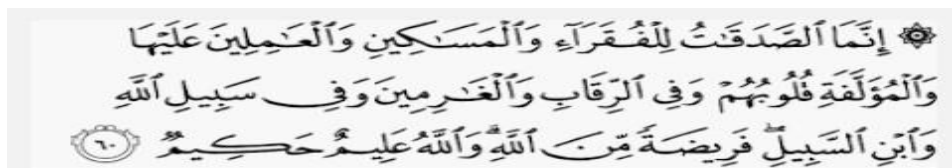 ۞ إِنَّمَا ٱلصَّدَقَٰتُ لِلْفُقَرَآءِ وَٱلْمَسَٰكِينِ وَٱلْعَٰمِلِينَ عَلَيْهَا
وَٱلْمُؤَلَّفَةِ قُلُوبُهُمْ وَفِى ٱلرِّقَابِ وَٱلْغَٰرِمِينَ وَفِى سَبِيلِ ٱللَّهِ
وَٱبْنِ ٱلسَّبِيلِۖ فَرِيضَةً مِّنَ ٱللَّهِۗ وَٱللَّهُ عَلِيمٌ حَكِيمٌ ۝٦٠